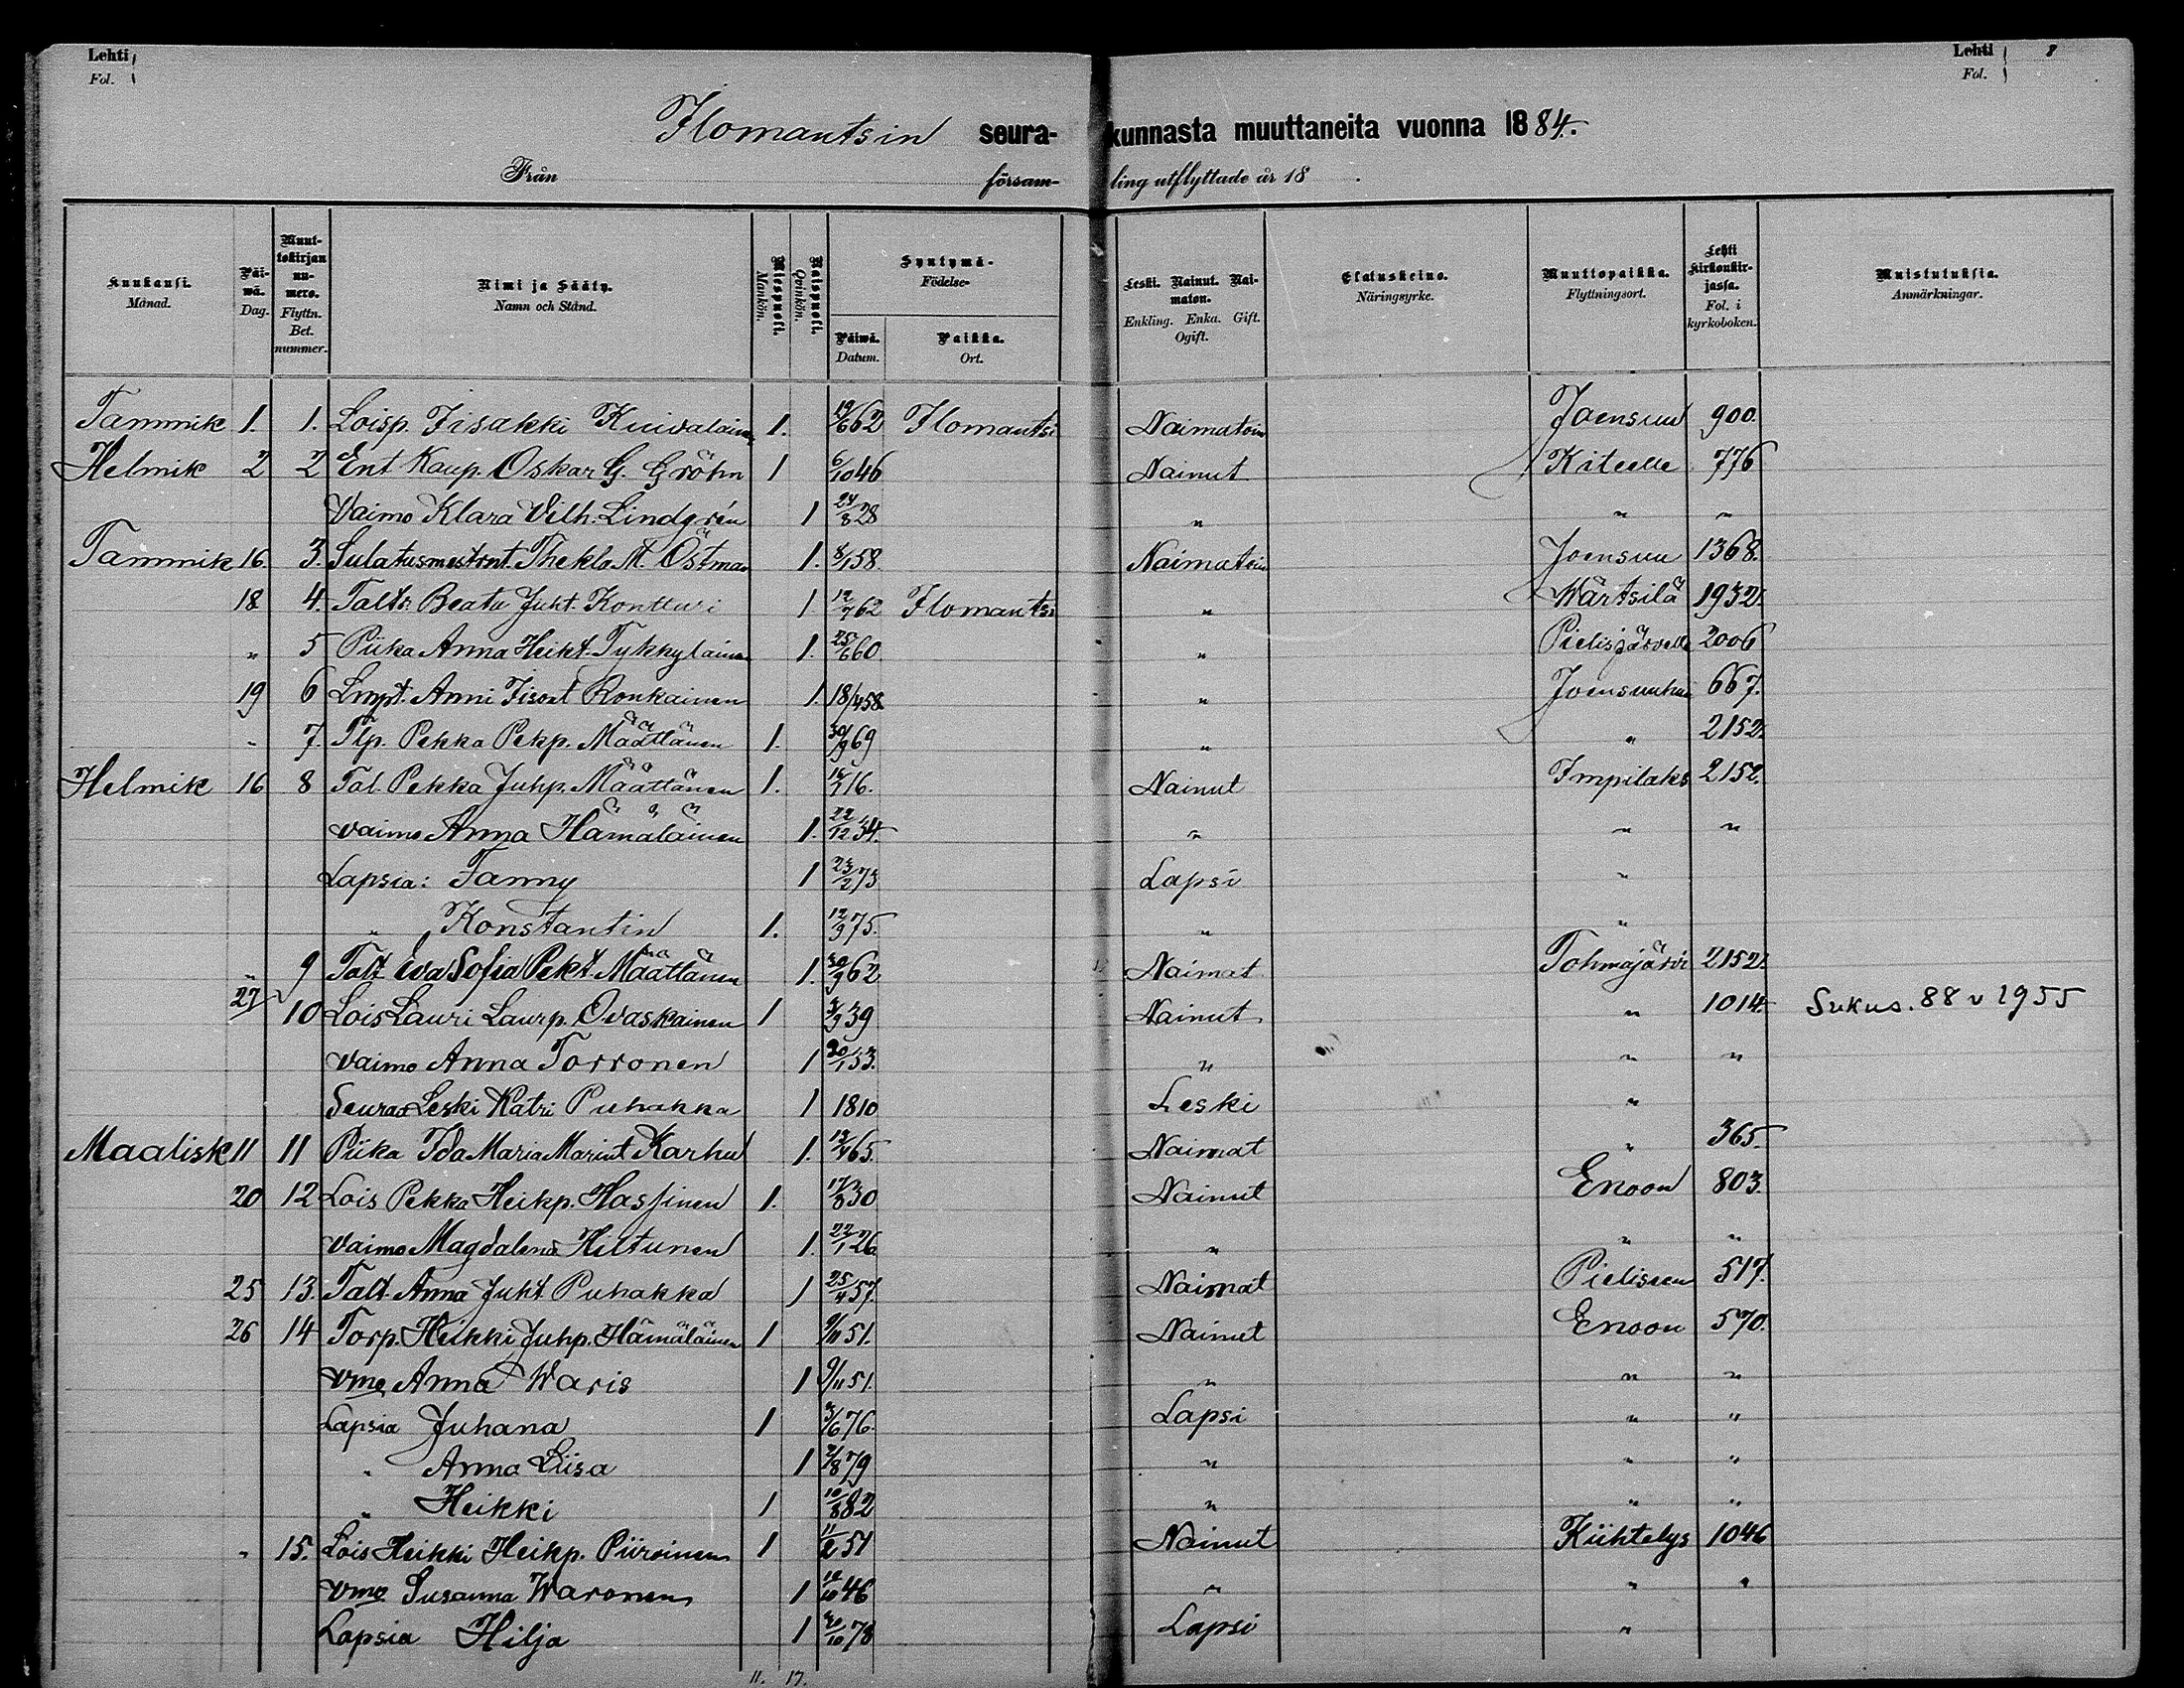 Lehti
Fol.
Lehti 8
Fol.
Ilomantsin seurakunnasta muuttaneita vuonna 1884.
Från församling utflyttade år 18 .
Kuukausi. Månad.
Päiwä. Dag.
Muuttokirjan numero. Flyttn. Bet. nummer.
Nimi ja Sääty. Namn och Stånd.
Miespuoli. Mankön.
Naispuoli. Qvinkön.
Syntymä- Födelse-
Päiwä. Datum.
Paikka. Ort.
Leski. Nainut. Naimaton. Enkling. Enka. Gift. Ogift.
Elatuskeino. Näringsyrke.
Muuttopaikka. Flyttningsort.
Lehti kirkonkirjassa. Fol. i kyrkoboken.
Muistutuksia. Anmärkningar.
Tammik 1. 1. Loisp. Iisakki Kuivalainen 1. 19/6 62 Ilomantsi Naimatoin Joensuu 900.
Helmik 2 2 Ent Kaup. Oskar G. Gröhn 1 6/10 46 Nainut Kiteelle 776
Vaimo Klara Vilh. Lindgrén 1 24/8 28 " " "
Tammik 16. 3. Sulatusmestrnt. Thekla M. Östman 1. 8/1 58. Naimatoin Joensuu 1368.
18 4. Taltr Beata Juht. Kontturi 1 12/7 62 Ilomantsi " Wärtsilä 1932.
" 5 Piika Anna Heikt. Tykkyläinen 1. 25/6 60 " Pielisjärvelle 2006
19 6 Lmpt. Anni Iisakt Ronkainen 1. 18/4 58. " Joensuuhun 667.
" 7. Tlp. Pekka Pekp. Määttänen 1. 30/9 69 " " 2152.
Helmik 16 8 Tal. Pekka Juhp. Määttänen 1. 16. Nainut Impilaks 2152.
vaimo Anna Hämäläinen 1. 22/12 34. " " "
Lapsia: Fanny 1 23/2 73 Lapsi "
" Konstantin 1. 12/9 75. " "
" 9 Talt Eva Sofia Pekt. Määttänen 1. 30/9 62 Naimat Tohmajärvi 2152.
27 10 Lois Lauri Laurp. Ovaskainen 1 3/9 39 Nainut " 1014. Sukus. 88 v 1955
vaimo Anna Torronen 1 20/1 53. " " "
Seuraa Leski Katri Puhakka 1 1810 Leski "
Maalisk 11 11 Piika Ida Maria Marint Karhu 1. 13/4 65. Naimat " 365.
20 12 Lois Pekka Heikp. Hassinen 1. 17/8 30 Nainut Enoon 803.
vaimo Magdalena Hiltunen 1. 22/1 26 " " "
25 13. Talt. Anna Juht. Puhakka 1 25/4 57. Naimat Pieliseen 517.
26 14 Torp. Heikki Juhp. Hämäläinen 1 9/10 51. Nainut Enoon 570.
vmo Anna Waris 1 9/11 51. " " "
Lapsia Juhana 1 3/6 76. Lapsi " "
" Anna Liisa 1 2/8 79 " " "
" Heikki 1 10/8 82 " " "
" 15. Lois Heikki Heikp. Piiroinen 1 11/2 51 Nainut Kiihtelys 1046
vmo Susanna Waronen 1 12/10 46 " " "
Lapsia Hilja 1 30/10 78 Lapsi "
11. 17.